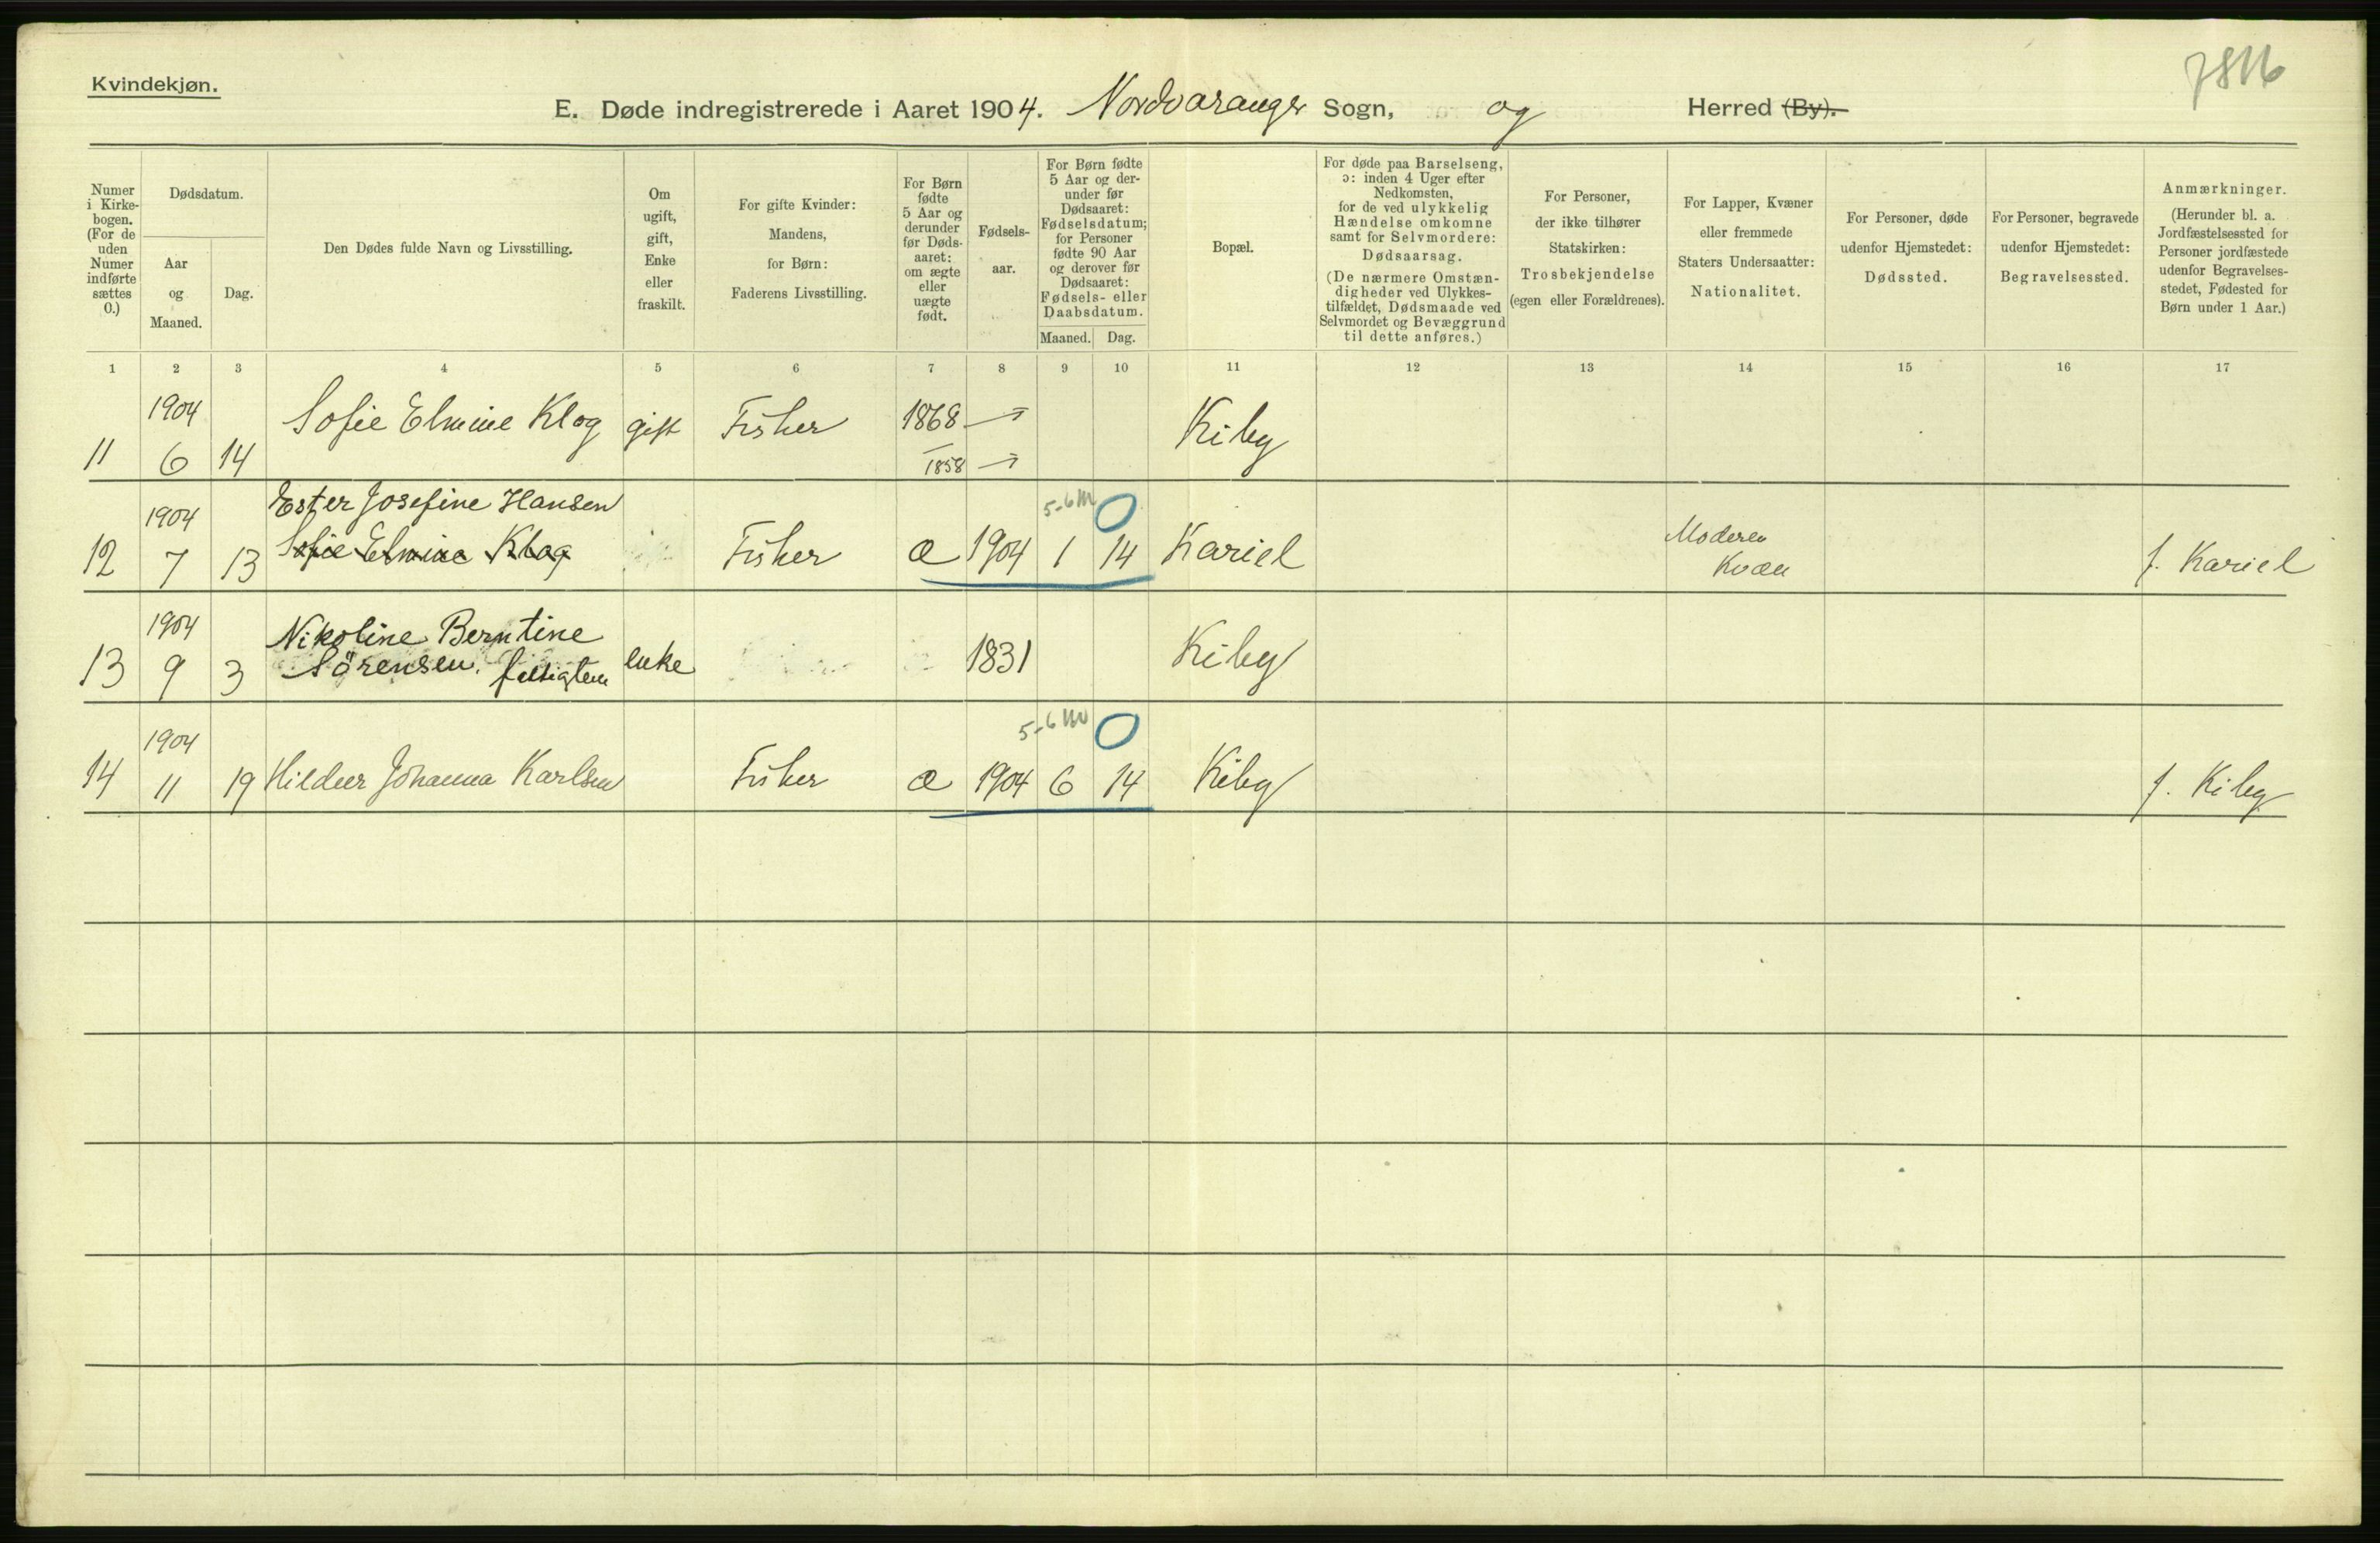 7816
Kvindekjøn.
E. Døde indregistrerede i Aaret 1904. Nordvaranger Sogn, og Herred (By).
Numer i Kirkebogen. (For de uden Numer indførte sættes 0.)
Dødsdatum.
Aar og Maaned.
Dag.
Den Dødes fulde Navn og Livsstilling.
Om ugift, gift, Enke eller fraskilt.
For gifte Kvinder: Mandens, for Børn: Faderens Livsstilling.
For Børn fødte 5 Aar og derunder før Dødsaaret: om ægte eller uægte født.
Fødselsaar.
For Børn fødte 5 Aar og derunder før Dødsaaret: Fødselsdatum; for Personer fødte 90 Aar og derover før Dødsaaret: Fødsels- eller Daabsdatum.
Maaned. Dag.
Bopæl.
For døde paa Barselseng, ɔ: inden 4 Uger efter Nedkomsten, for de ved ulykkelig Hændelse omkomne samt for Selvmordere: Dødsaarsag.
(De nærmere Omstændigheder ved Ulykkestilfældet, Dødsmaade ved Selvmordet og Bevæggrund til dette anføres.)
For Personer, der ikke tilhører Statskirken: Trosbekjendelse (egen eller Forældrenes).
For Lapper, Kvæner eller fremmede Staters Undersaatter: Nationalitet.
For Personer, døde udenfor Hjemstedet: Dødssted.
For Personer, begravede udenfor Hjemstedet: Begravelsessted.
Anmærkninger. (Herunder bl. a. Jordfæstelsessted for Personer jordfæstede udenfor Begravelsesstedet, Fødested for Børn under 1 Aar.)
1 2 3 4 5 6 7 8 9 10 11 12 13 14 15 16 17
11 1904 6 14 Sofie Elmine Klog gift Fisker 1868 → Kiby
1858 →
5-6 M 0
Ester Josefine Hansen
12 1904 7 13 Sofie Elmine Klog Fisker æ 1904 1 14 Kariel Moderen Kvæn f. Kariel
13 1904 9 3 Nikoline Berntine
Sörensen. fattiglem enke 1831 Kiby
5-6 M 0
14 1904 11 19 Hildur Johanna Karlsen Fisker æ 1904 6 14 Kiby f. Kiby